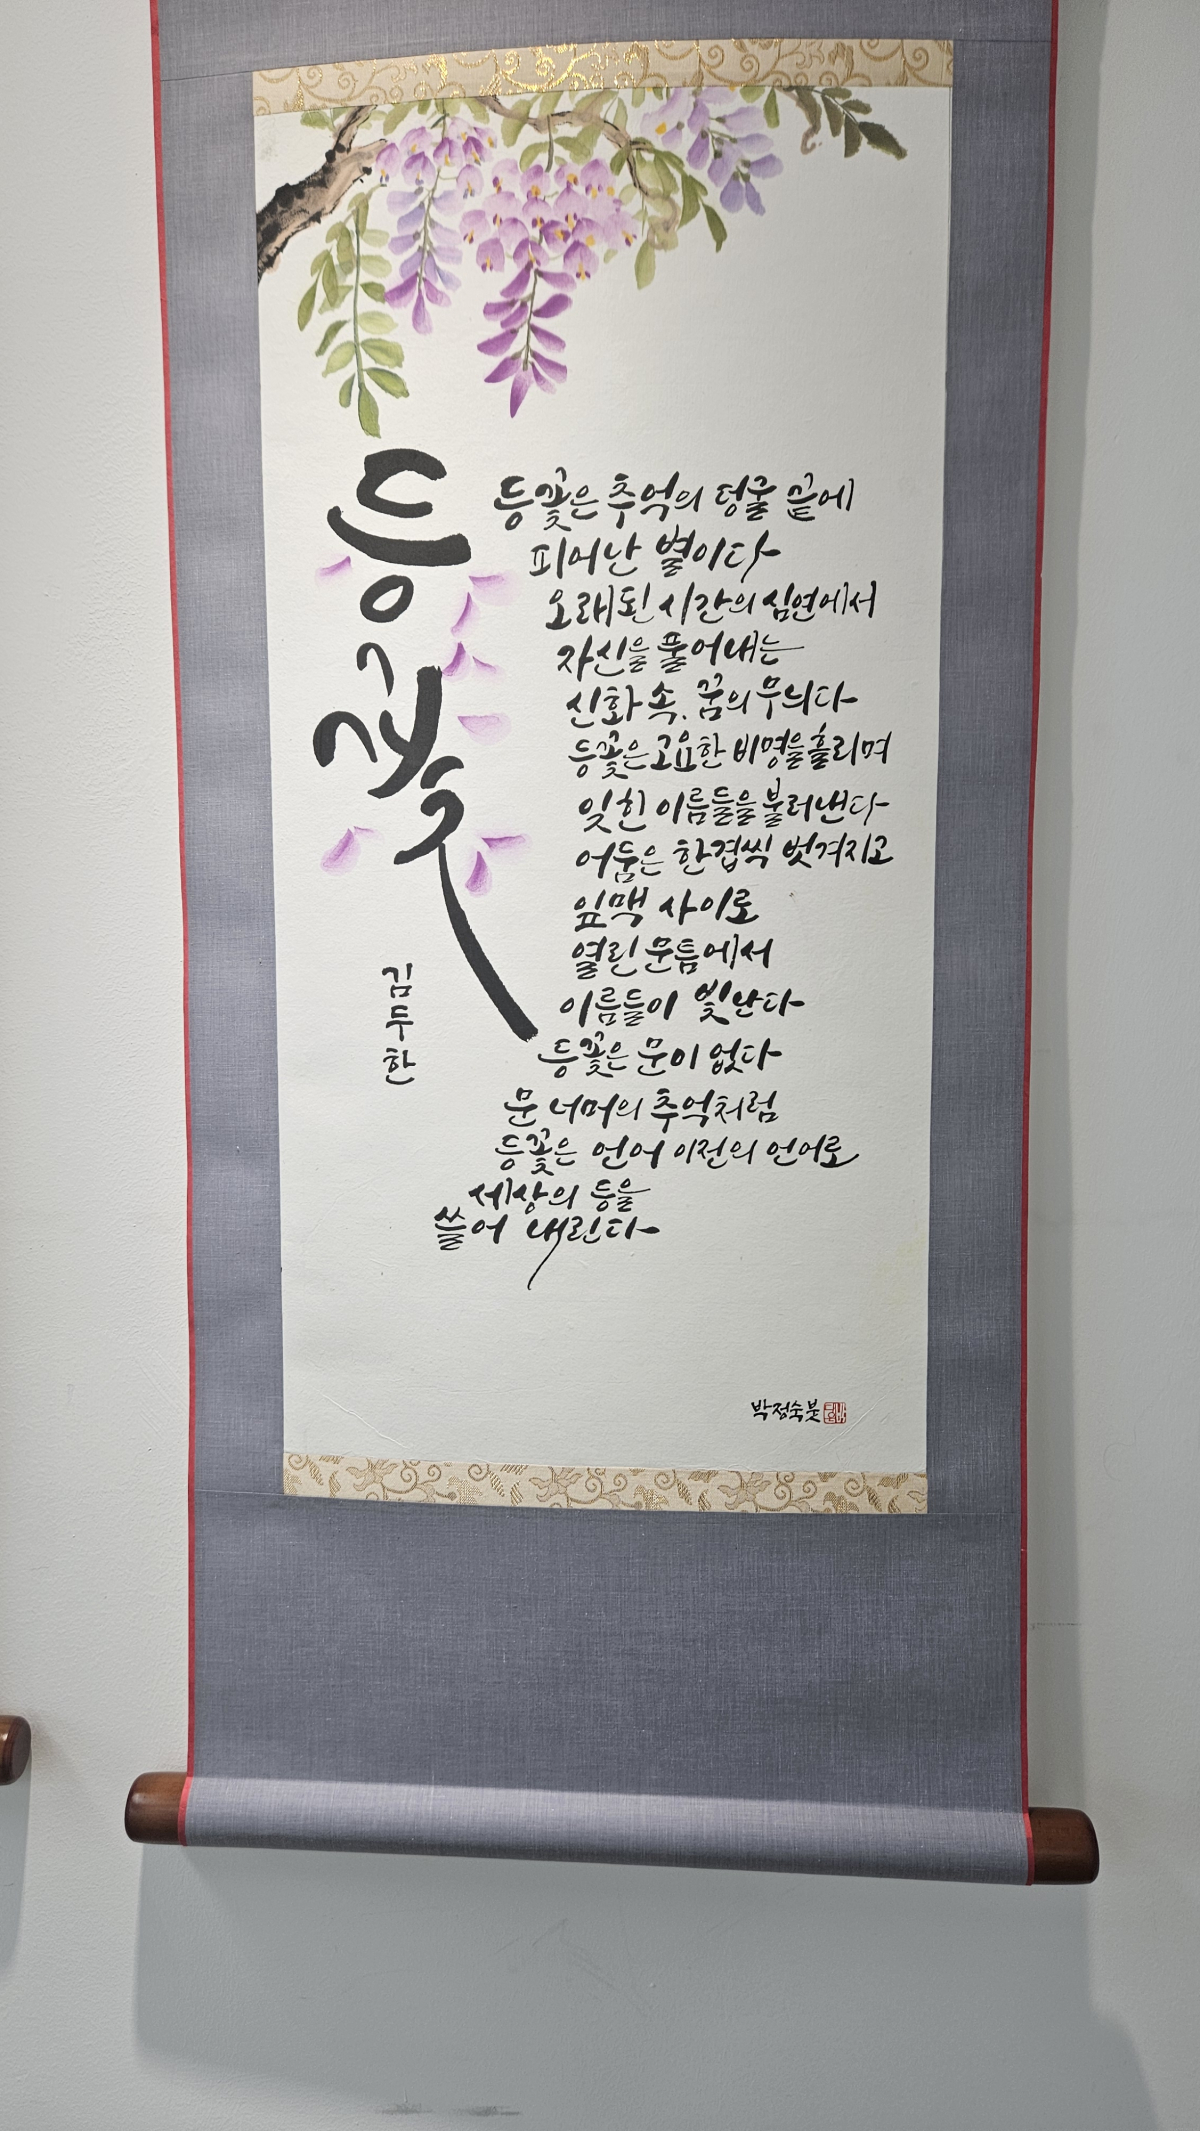 등꽃
김두한
등꽃은 추억의 덩굴 끝에
피어난 별이다
오래된 시간의 심연에서
자신을 풀어내는
신화 속, 꿈의 무늬다
등꽃은 고요한 비명을 흘리며
잊힌 이름들을 불러낸다
어둠은 한겹씩 벗겨지고
잎맥 사이로
열린 문틈에서
이름들이 빛난다
등꽃은 문이 없다
문 너머의 추억처럼
등꽃은 언어 이전의 언어로
세상의 등을
쓸어 내린다
박정숙 붓